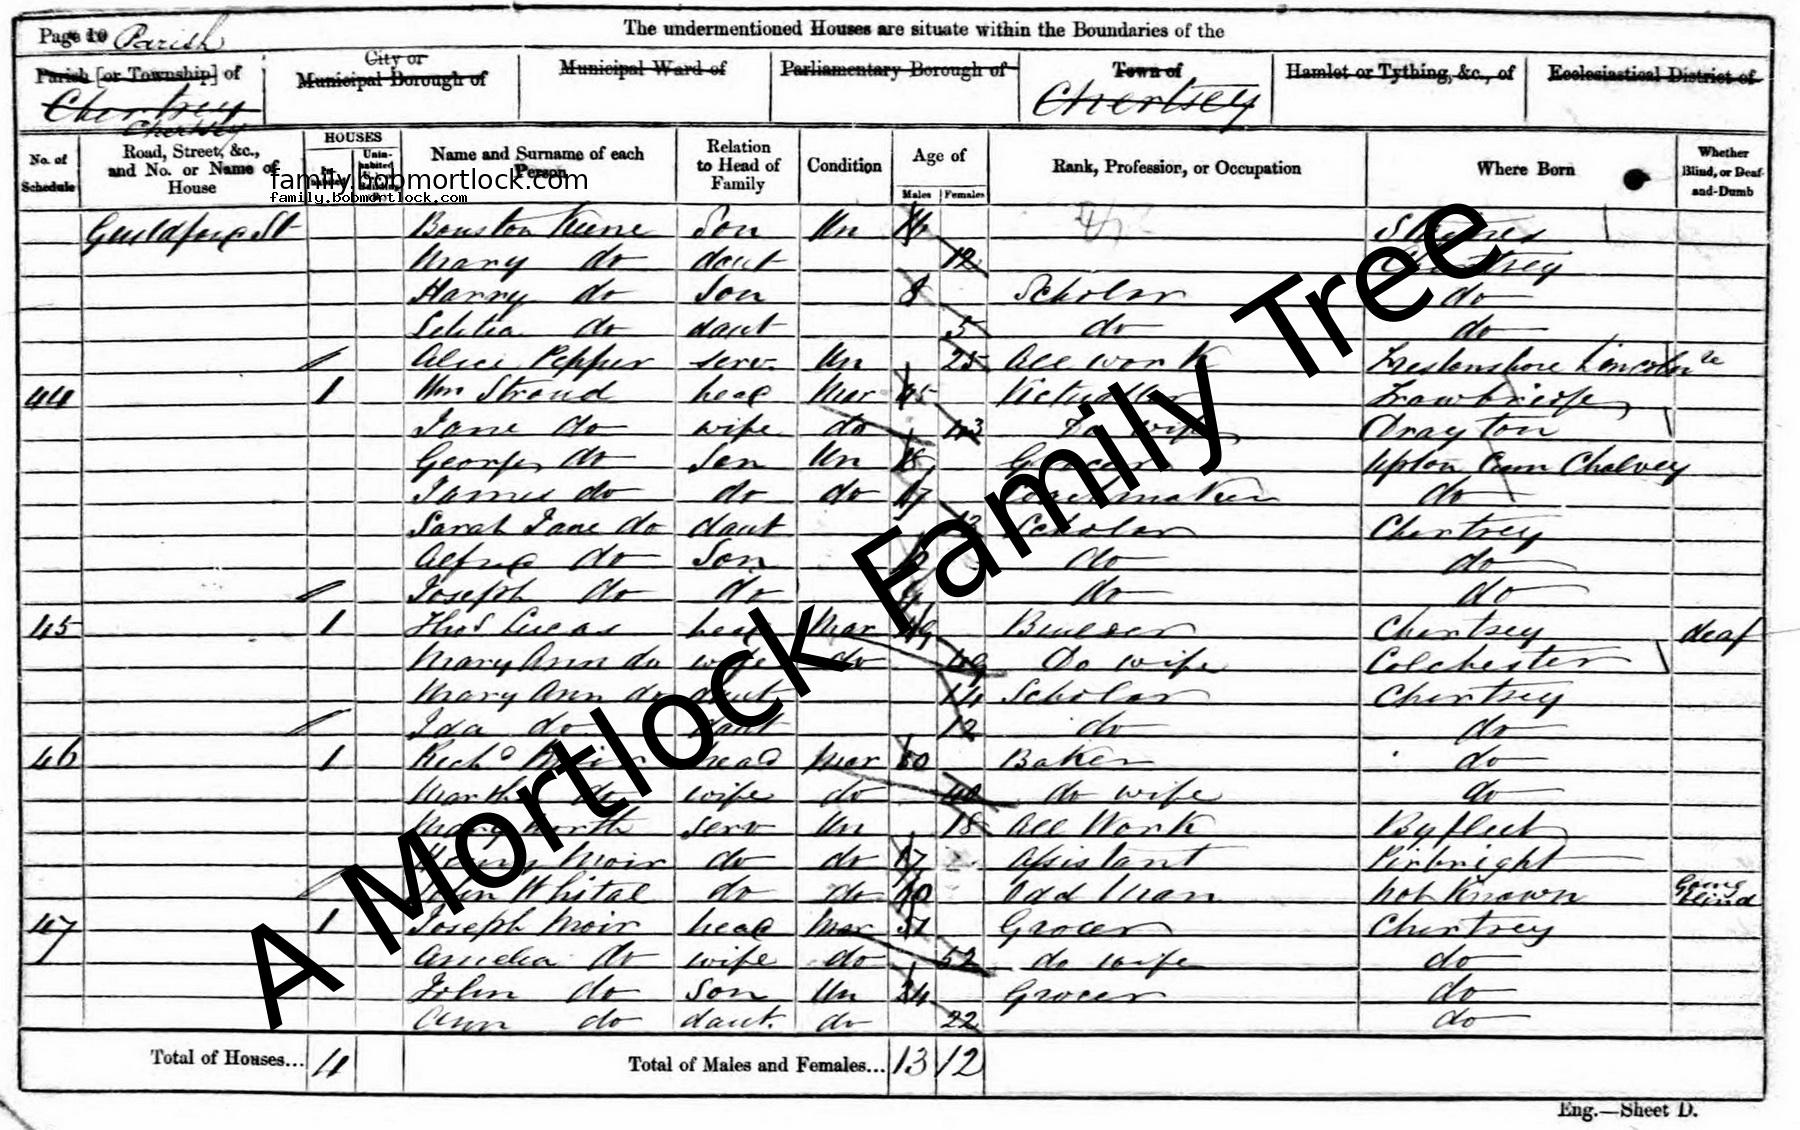 Page 10 Parish
The undermentioned Houses are situate within the Boundaries of the
Parish [or Township] of
City or Municipal Borough of
Municipal Ward of
Parliamentary Borough of
Town of
Hamlet or Tything, &c., of
Ecclesiastical District of
Chertsey
Chertsey
Chertsey
No. of Schedule
Road, Street, &c., and No. or Name of House
HOUSES
Name and Surname of each Person
Relation to Head of Family
Condition
Age of
Males
Females
Rank, Profession, or Occupation
Where Born
Whether Blind, or Deaf-and-Dumb
family.bobmortlock.com
family.bobmortlock.com
Guildford St Keene Son Un
Mary do daut 12 Chertsey
Harry do Son 8 Scholar do
do daut 5 do do
Alice Pepper serv. Un 25 All work
44 1 Wm Stroud head Mar 45
Jane do wife do 43 Do wife Drayton
George do Son Un 18 Grocer Upton Cum Chalvey
James do do do 17 do
Sarah Jane do daut 13 Scholar Chertsey
Alfred do Son do do
Joseph do do do do
45 1 Thos Lucas head Mar 49 Chertsey deaf
Mary Ann do wife do 49 Do wife Colchester
Mary Ann do daut 14 Scholar Chertsey
Ida do daut 12 do do
46 1 Richd head Mar Baker do
Martha do wife do do wife do
Mary North serv Un 18 All Work Byfleet
Moir do do 17 Assistant Pirbright
John Whital do do Odd Man not Known Going blind
47 1 Joseph Moir head Mar 51 Grocer Chertsey
Amelia do wife do 52 do wife do
John do son Un 24 Grocer do
Ann do daut. do 22 do
Total of Houses... 4
Total of Males and Females... 13 12
Eng.—Sheet D.
A Mortlock Family Tree